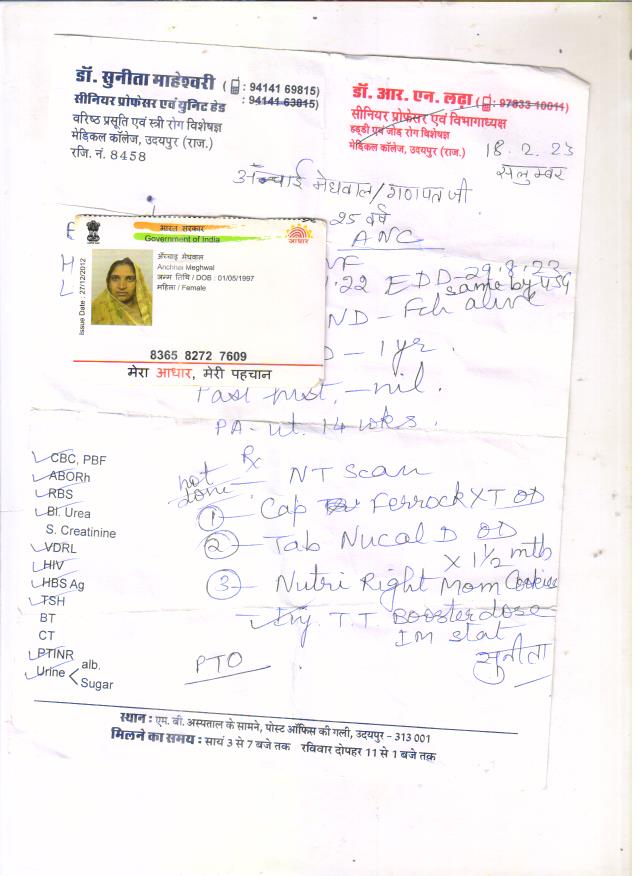 डॉ. सुनीता माहेश्वरी ( : 94141 69815)
सीनियर प्रोफेसर एवं युनिट हेड : 94141 63815)
वरिष्ठ प्रसूति एवं स्त्री रोग विशेषज्ञ
मेडिकल कॉलेज, उदयपुर (राज.)
रजि. नं. 8458
डॉ. आर. एन. लढ़ा ( : 97833 10011)
सीनियर प्रोफेसर एवं विभागाध्यक्ष
हड्डी एवं जोड़ रोग विशेषज्ञ
मेडिकल कॉलेज, उदयपुर (राज.)
18.2.23
सलुम्बर
मेघवाल/गणपत जी
25 वर्ष
ANC
भारत सरकार
Government of India
आधार
Issue Date : 27/12/2012
अँच्चाइ मेघवाल
Anchhai Meghwal
जन्म तिथि / DOB : 01/05/1997
महिला / Female
8365 8272 7609
मेरा आधार, मेरी पहचान
22 EDD-29.8.23
same by USG
ND - Fch alive
- 1 yr.
- nil.
PA - ut. 14 wks.
CBC, PBF
ABORh
RBS
Bl. Urea
S. Creatinine
VDRL
HIV
HBS Ag
TSH
BT
CT
PTINR
Urine alb.
Sugar
Rx
not done - NT Scan
1 - Cap Ferrock XT OD
2 - Tab Nucal D OD
x 1½ mth
3 - Nutri Right Mom Cookies
Inj. T.T. Booster dose
IM stat
सुनीता
PTO
स्थान : एम. बी. अस्पताल के सामने, पोस्ट ऑफिस की गली, उदयपुर - 313 001
मिलने का समय : सायं 3 से 7 बजे तक रविवार दोपहर 11 से 1 बजे तक